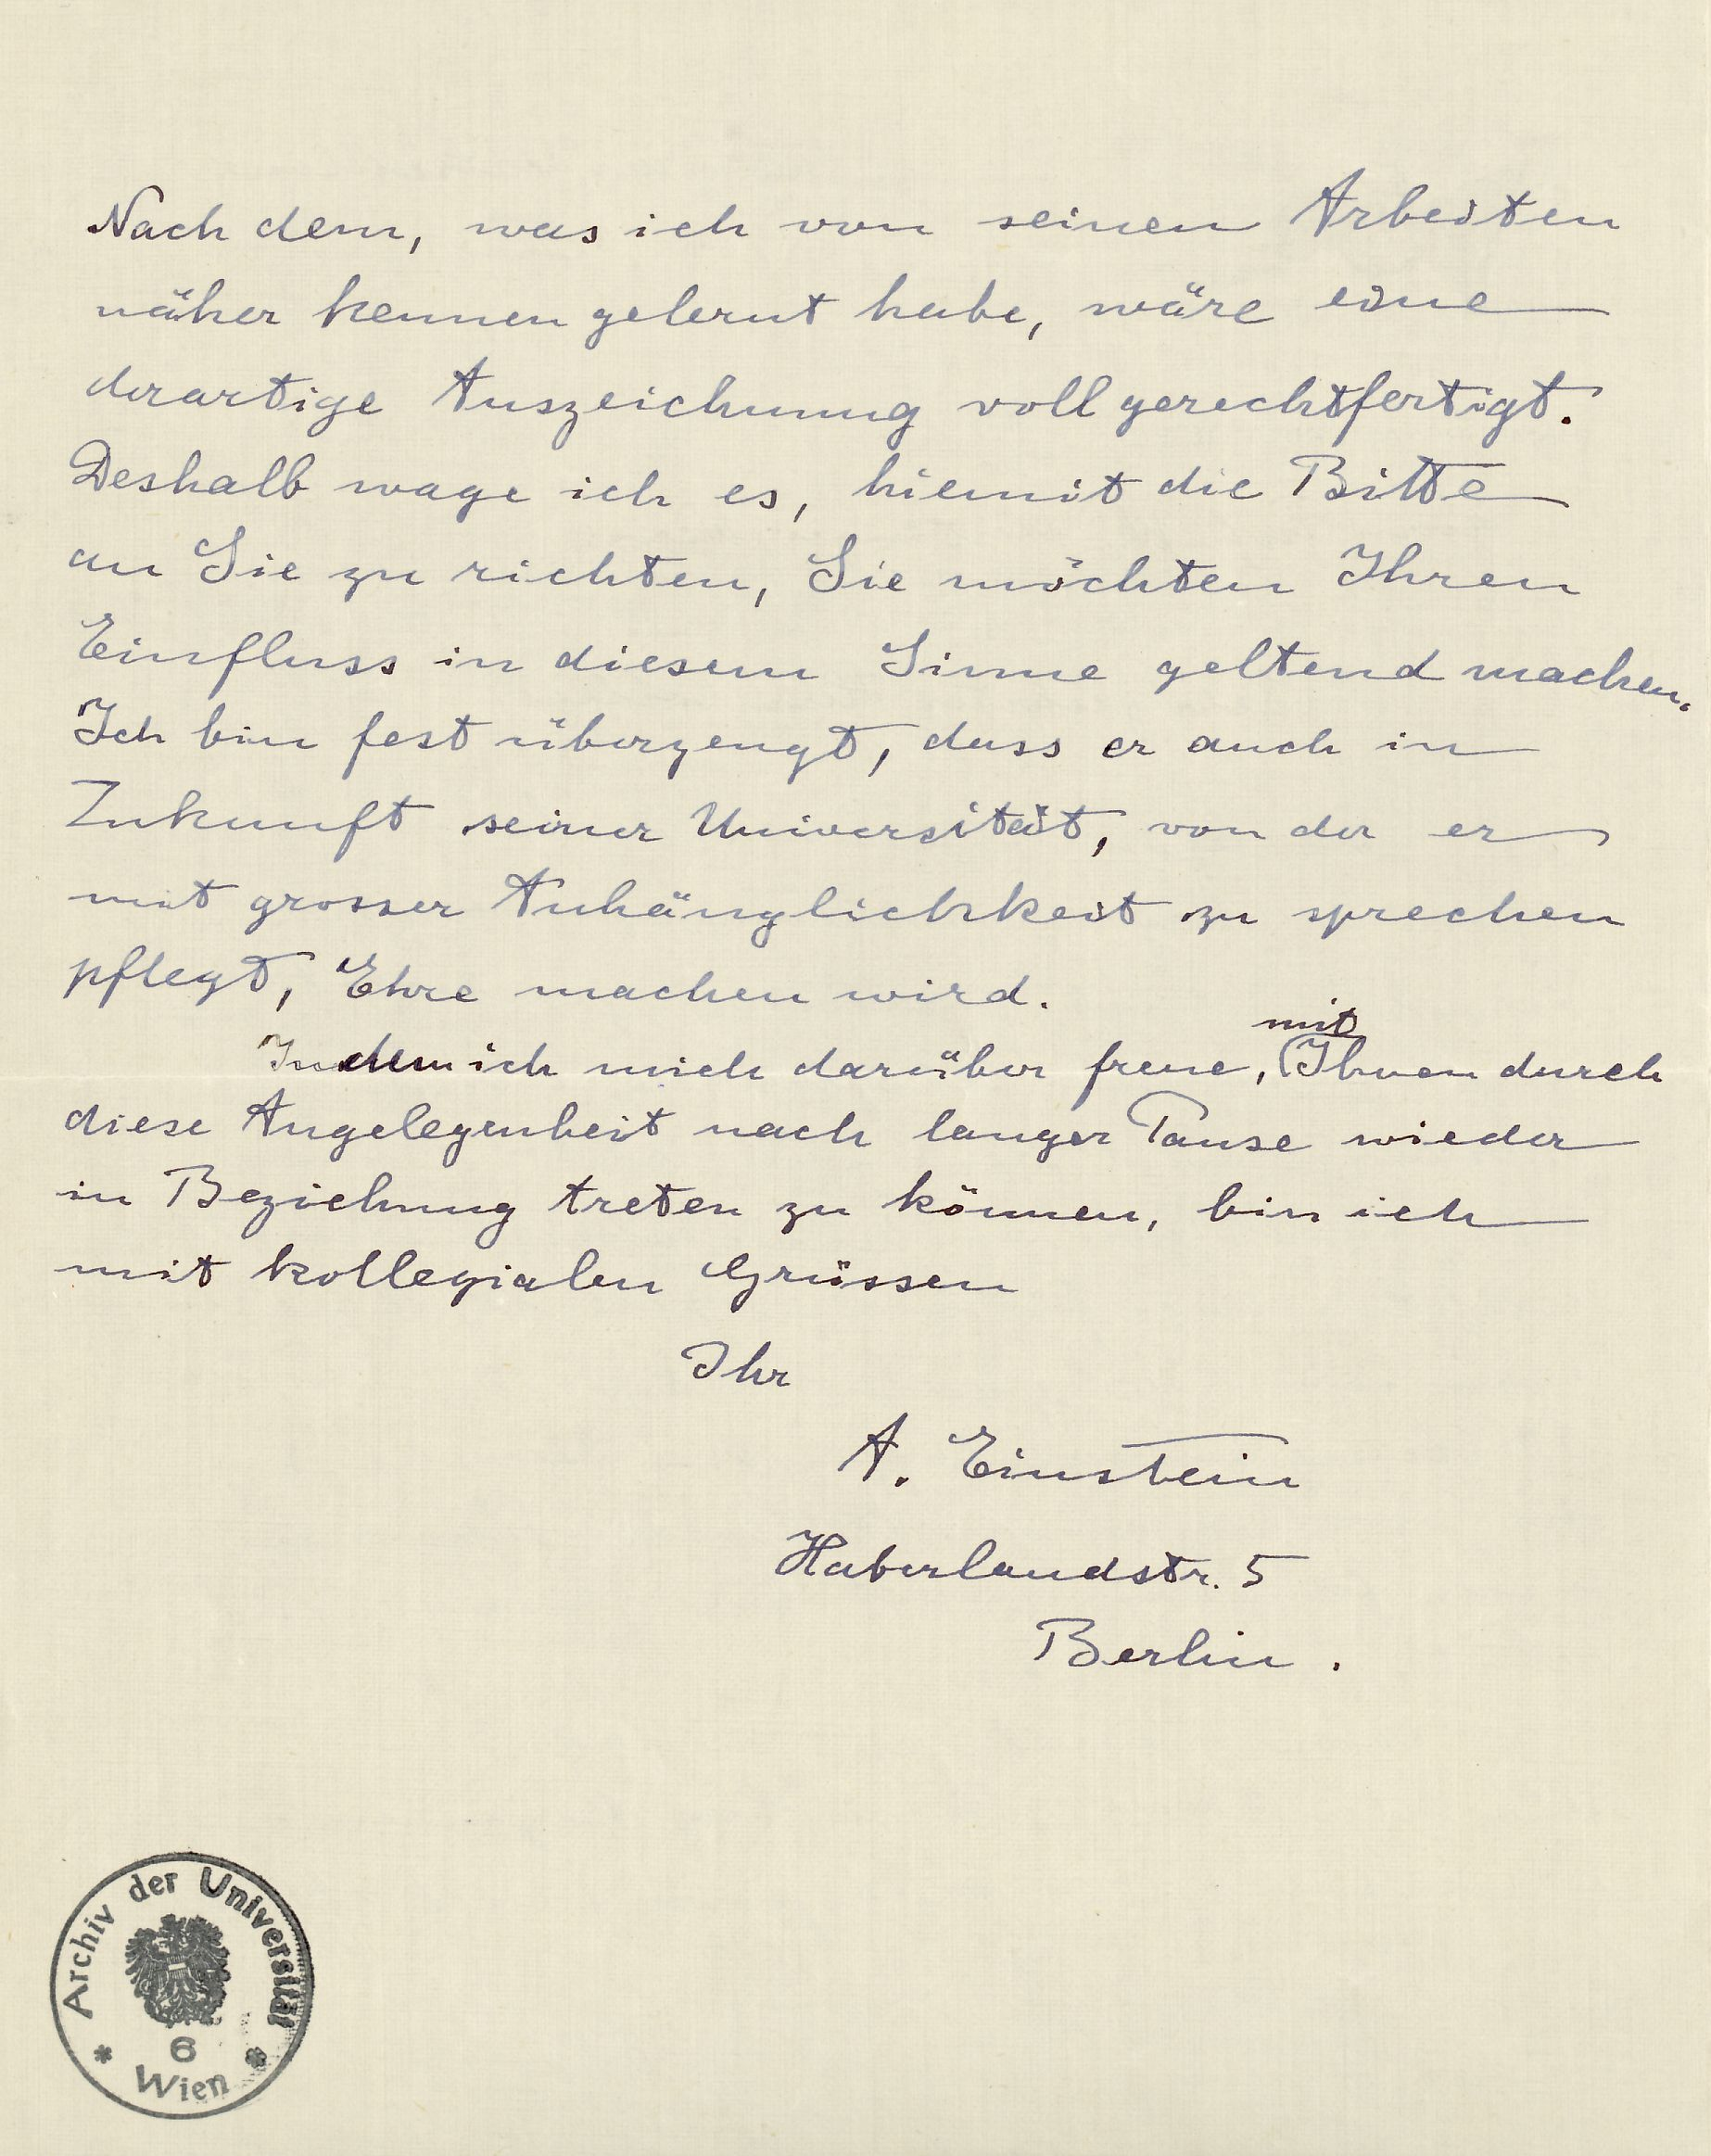 Nach dem, was ich von seinen Arbeiten
näher kennen gelernt habe, wäre eine
derartige Auszeichnung voll gerechtfertigt.
Deshalb wage ich es, hiemit die Bitte
an Sie zu richten, Sie möchten Ihren
Einfluss in diesem Sinne geltend machen.
Ich bin fest überzeugt, dass er auch in
Zukunft seiner Universität, von der er
mit grosser Anhänglichkeit zu sprechen
pflegt, Ehre machen wird.
mit
Indem ich mich darüber freue, Ihnen durch
diese Angelegenheit nach langer Pause wieder
in Beziehung treten zu können, bin ich
mit kollegialen Grüssen
Ihr
A. Einstein
Haberlandstr. 5
Berlin.
Archiv der Universität
6
* Wien *